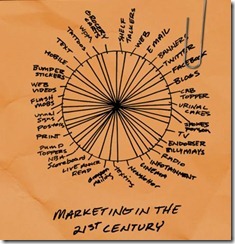 GROCERY
CARTS
SHELF
TALKERS
WEB
EMAIL
BANNERS
TWITTER
FACEBOOK
BLOGS
CAB
TOPPER
URINAL
CAKES
TV
ENDORSER
BILLY MAYS
RADIO
INFOTAINMENT
CINEMA
NEWSLETTER
LIVE ANNCR
READ
NBA
SCOREBOARD
PUMP
TOPPERS
PRINT
POSTERS
URINAL
SIGNS
FLASH
MOBS
WEB
VIDEOS
BUMPER
STICKERS
MOBILE
TEXT
TATTOOS
MARKETING IN THE
21ST CENTURY